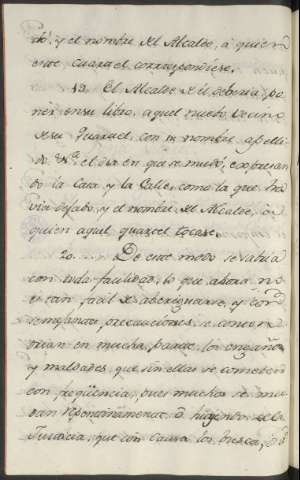 do, y el nombre del Alcalde, à quien
este Quartel correspondiese.
19. El Alcalde de èl deberia po-
ner en su libro, aquel nuebo vecino
de su Quartel, con su nombre, apelli-
do &.ª el dia en que se mudò, expresan-
do la Casa y la Calle, como la que ha-
via dejado, y el nombre del Alcalde, à
quien aquel quartel tocase.
20. De este modo se sabria
con toda facilidad, lo que ahora no
es tan facil de aberiguarse, y con
semejantes precauciones, se
en mucha parte, los engaños
y maldades, que sin ellas se cometen
con freqüencia, pues muchos se mu-
dan repentinamente, ò huyendo de la
Justicia, que con causa los busca, ò